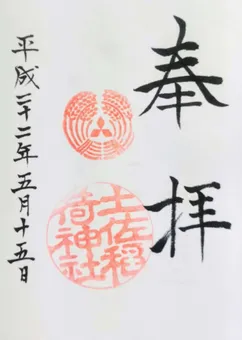 奉拝
土佐稲
荷神社
平成二十二年五月十五日